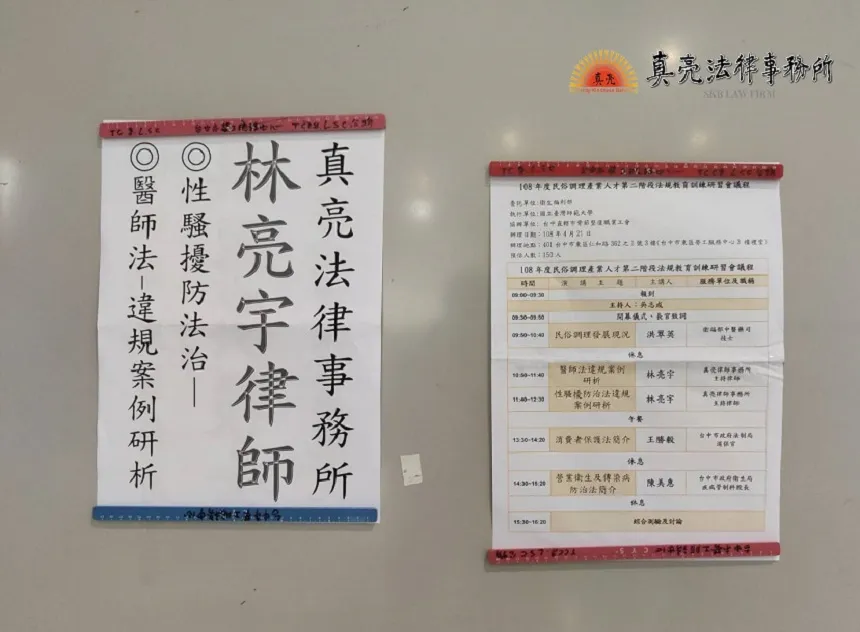 真亮
真亮法律事務所
SKB LAW FIRM
真亮法律事務所
林亮宇律師
◎性騷擾防法治—
◎醫師法-違規案例研析
108年度民俗調理產業人才第二階段法規教育訓練研習會議程
委託單位:衛生福利部
執行單位:國立臺灣師範大學
協辦單位:台中直轄市脊節整復職業工會
辦理日期:108年4月21日
預估人數:150人
108年度民俗調理產業人才第二階段法規教育訓練研習會議程
時間 演講主題 主講人 服務單位及職稱
09:00~09:30 報到
主持人:吳志成
09:30~09:50 開幕儀式、長官致詞
09:50~10:40 民俗調理發展現況 洪翠英 衛福部中醫藥司
技士
休息
10:50~11:40 醫師法違規案例研析 林亮宇 真亮律師事務所
主持律師
11:40~12:30 性騷擾防治法違規案例研析 林亮宇 真亮律師事務所
主持律師
午餐
13:30~14:20 消費者保護法簡介 王勝毅 台中市政府法制局
消保官
休息
14:30~15:20 營業衛生及傳染病防治法簡介 陳美惠 台中市政府衛生局
疾病管制科股長
休息
15:30~16:20 綜合測驗及討論